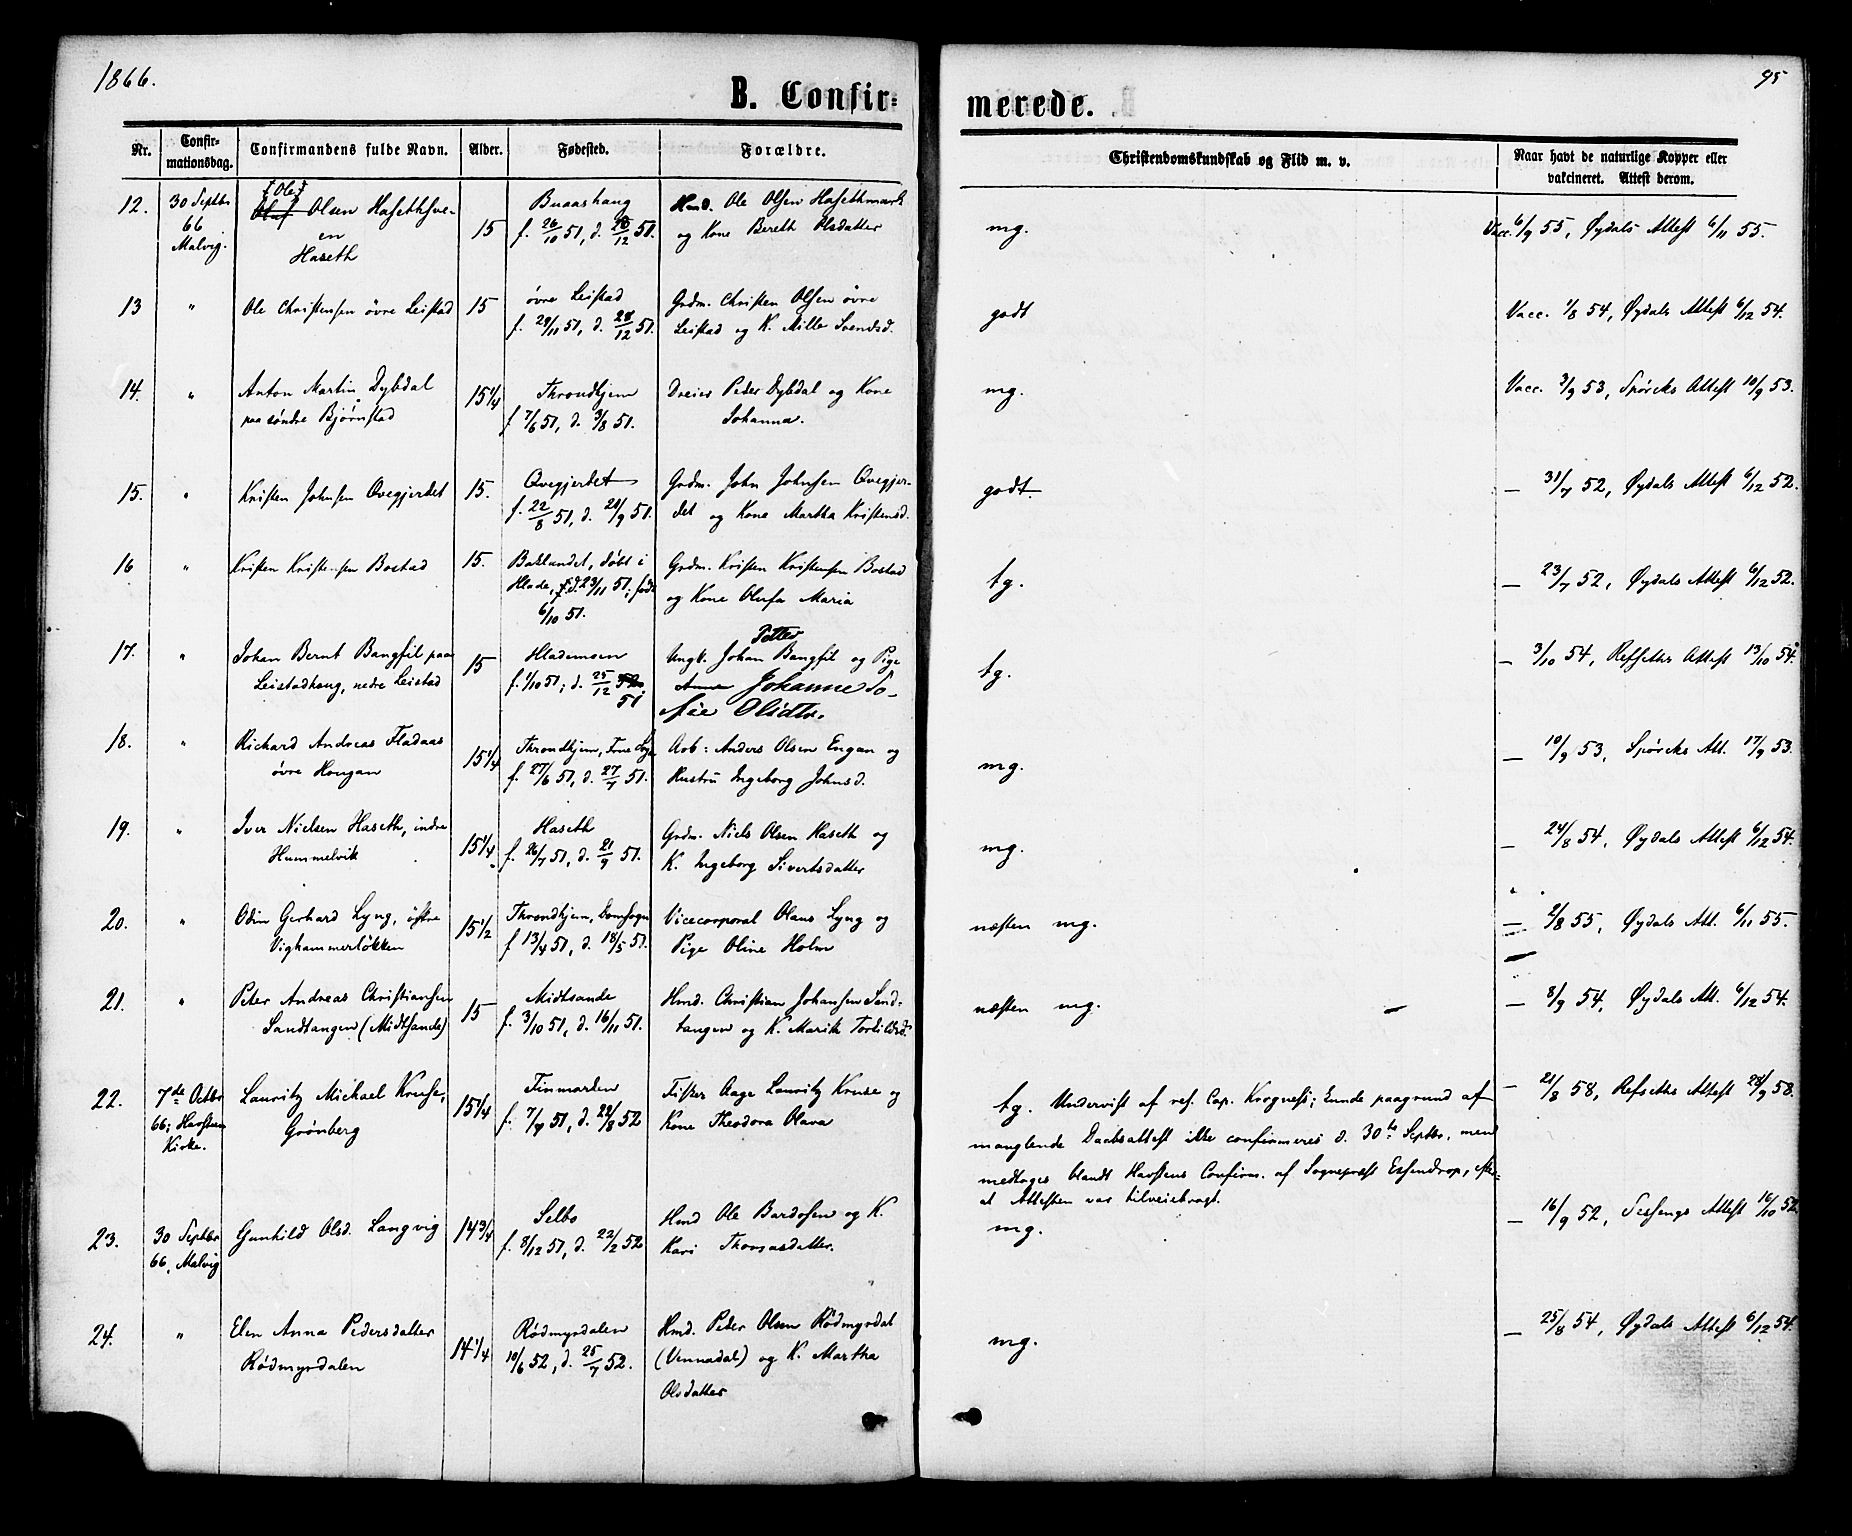 1866.
95
B. Confir-
merede.
Nr.
Confir-
mationsdag.
Confirmandens fulde Navn.
Alder.
Fødested.
Forældre.
Christendomskundskab og Flid m. v.
Naar havt de naturlige Kopper eller
vakcineret. Attest derom.
12. 30 Septbr [Ole] Buaashaug Hmd. Ole Olsen Hasethmark
66 Olaf Olsen Hasethsve- 15 f. 26/10 51, d. 26/12 51. og Kone Bereth Olsdatter mg. Vacc. 6/9 55, Øydals Attest 6/11 55.
Malvig. en
Haseth
13 " Ole Christensen övre Leistad 15 övre Leistad Grdm. Christen Olsen övre godt Vacc. 1/8 54, Øydals Attest 6/12 54.
f. 29/11 51, d. 28/12 51. Leistad og K. Mille Svendsd.
14. " Anton Martin Dybdal 15 1/4 Throndhjem Dreier Peder Dybdal og Kone mg. Vacc. 3/9 53, Spørcks Attest 10/9 53.
paa søndre Bjørnstad f. 7/6 51, d. 3/8 51. Johanna.
15. " Kristen Johnsen Qvegjerdet 15. Qvegjerdet Grdm. John Johnsen Qvegjer- godt. — 31/7 52, Øydals Attest 6/12 52.
f. 22/8 51, d. 21/9 51. det og Kone Martha Kristensd.
16 " Kristen Kristensen Bostad 15. Baklandet, døbt i Grdm. Kristen Kristensen Bostad tg. — 23/7 52, Øydals Attest 6/12 52.
Hlade, d. 23/11 51; født og Kone Olufa Maria
6/10 51.
Petter
17. " Johan Bernt Bangfil paa 15 Hlademoen Ungk. Johan Bangfil og Pige tg. — 3/10 54, Refseths Attest 13/10 54.
Leistadhaug, nedre Leistad f. 1/10 51; d. 25/12 52. Anna Johanne So-
51 fie Olsdtr.
18. " Richard Andreas Fladaas 15 1/4 Throndhjem, Frue Sogn Arb: Anders Olsen Engan og mg. — 10/9 53, Spørcks Att. 17/9 53.
övre Hougan f. 27/6 51, d. 27/7 51. Hustru Ingeborg Johnsd.
19. " Iver Nielsen Haseth, indre 15 1/4 Haseth Grdm. Niels Olsen Haseth og mg. — 24/8 54, Øydals Attest 6/12 54.
Hummelvik f. 26/7 51, d. 21/9 51. K. Ingeborg Sivertsdatter
20. " Odin Gerhard Lyng, östre 15 1/2 Throndhjem, Domsogn Vicecorporal Olaus Lyng og næsten mg. — 2/8 55, Øydals Att. 6/11 55.
Vighammerløkken f 13/4 51, d. 18/5 51. Pige Oline Holm
21. " Peter Andreas Christiansen 15 Midtsande Hmd. Christian Johansen Sand- næsten mg. — 8/9 54, Øydals Att. 6/12 54.
Sandtangen (Midtsande) f. 3/10 51, d. 16/11 51. tangen og K. Marit Torkildsd.
22. 7de Octbr Lauritz Michael Kruse, 15 1/4 Finmarken Fisker Aage Lauritz Kruse og tg. Undervist af res. Cap. Krogness; kunde paagrund af — 21/8 58, Refseths Attest 28/9 58.
66; Havstein Grønberg f. 7/7 51, d. 22/8 52 Kone Theodora Olava manglende Daabsattest ikke confirmeres d. 30te Septbr, men
Kirke. medtoges blandt Havsteins Confirm. af Sognepræst Essendrop, efter
at Attesten var tilveiebragt.
23. 30 Septbr Gunhild Olsd. Langvig 14 3/4 Selbo Hmd Ole Bardosen og K. mg. — 16/9 52, Jessengs Attest 16/10 52
66, Malvig f. 8/12 51, d. 22/2 52 Kari Thomasdatter.
24. " Elen Anna Pedersdatter 14 1/4 Rødmyrdalen Hmd. Peter Olsen Rödmyrdal mg. — 25/8 54, Øydals Attest 6/12 54.
Rødmyrdalen 10/6 52, d. 25/7 52. (Vennadal) og K. Martha
Olsdatter